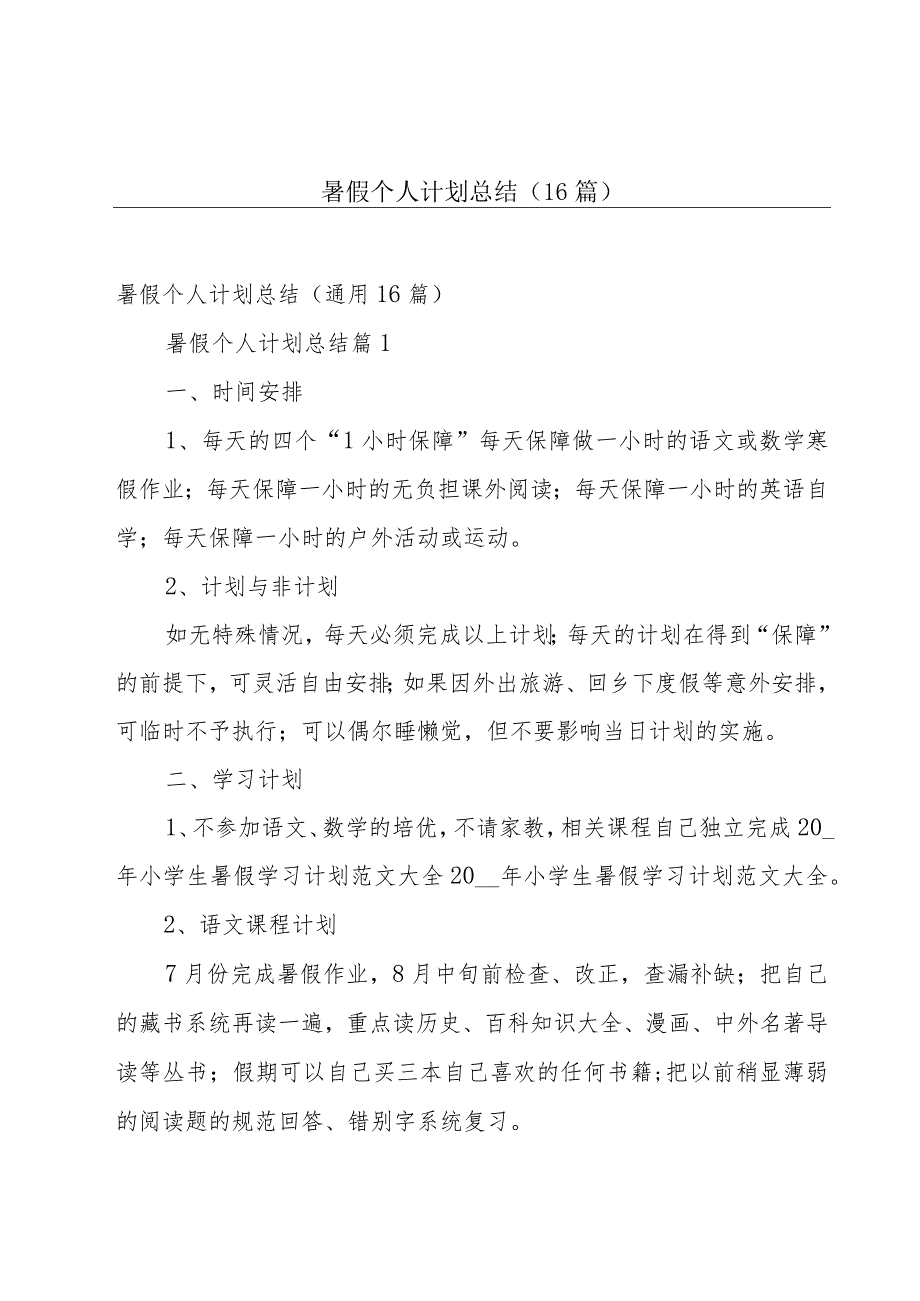 暑假个人计划总结（16篇）
暑假个人计划总结（通用16篇）
暑假个人计划总结篇1
一、时间安排
1、每天的四个“1小时保障”每天保障做一小时的语文或数学寒
假作业；每天保障一小时的无负担课外阅读；每天保障一小时的英语自
学；每天保障一小时的户外活动或运动。
2、计划与非计划
如无特殊情况，每天必须完成以上计划；每天的计划在得到“保障”
的前提下，可灵活自由安排；如果因外出旅游、回乡下度假等意外安排，
可临时不予执行；可以偶尔睡懒觉，但不要影响当日计划的实施。
二、学习计划
1、不参加语文、数学的培优，不请家教，相关课程自己独立完成20_
年小学生暑假学习计划范文大全20__年小学生暑假学习计划范文大全。
2、语文课程计划
7月份完成暑假作业，8月中旬前检查、改正，查漏补缺；把自己
的藏书系统再读一遍，重点读历史、百科知识大全、漫画、中外名著导
读等丛书；假期可以自己买三本自己喜欢的任何书籍;把以前稍显薄弱
的阅读题的规范回答、错别字系统复习。